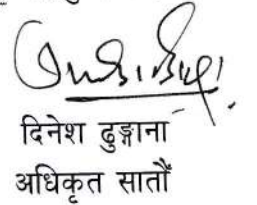 दिनेश ढुङ्गाना
अधिकृत सातौं